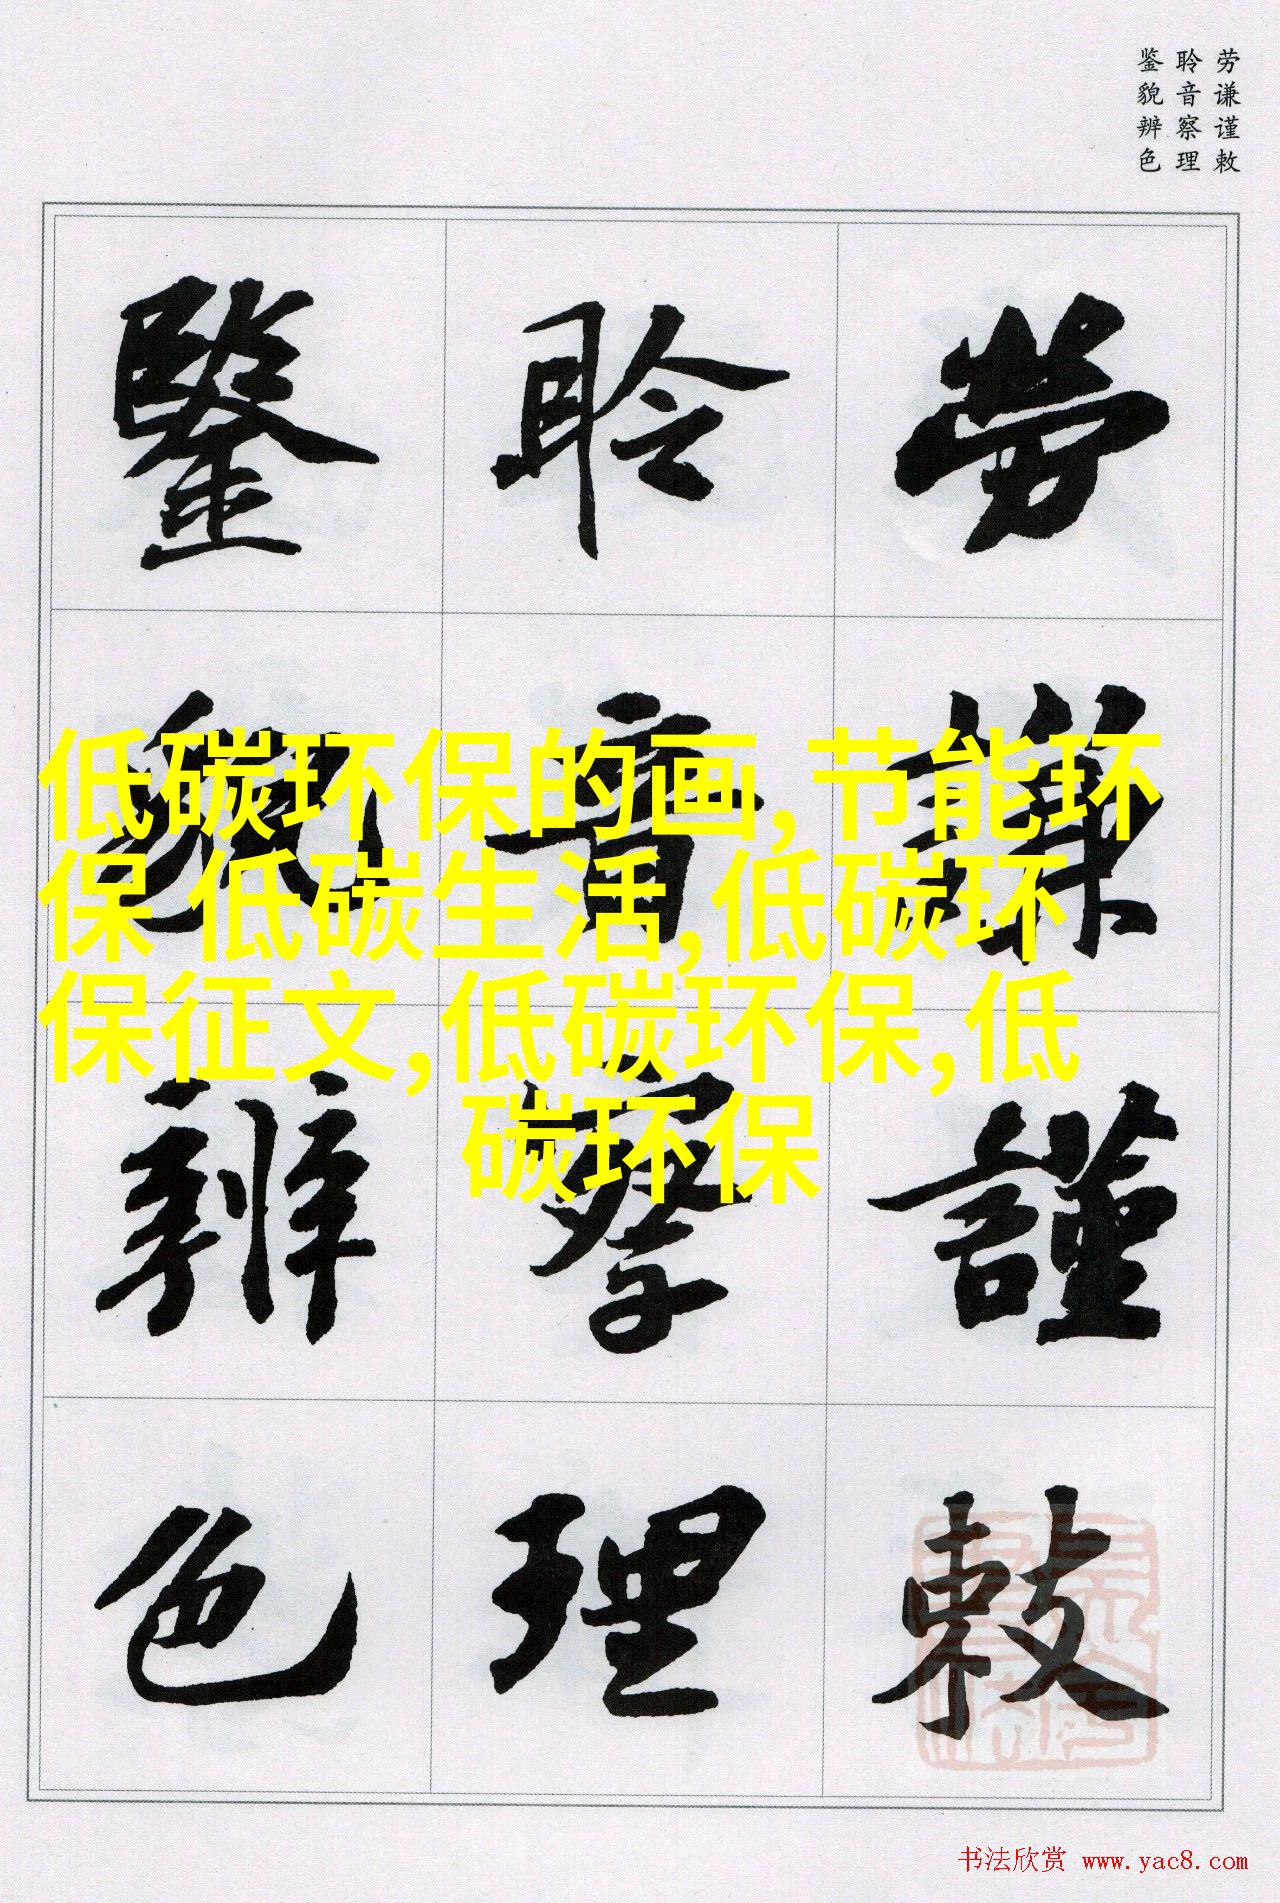 劳谦谨敕
聆音察理
鉴貌辨色
勞謙謹敕
聆音察理
鑒貌辨色
低碳环保的画,节能环
保 低碳生活,低碳环
保征文,低碳环保,低
碳环保
书法欣赏 www.yac8.com